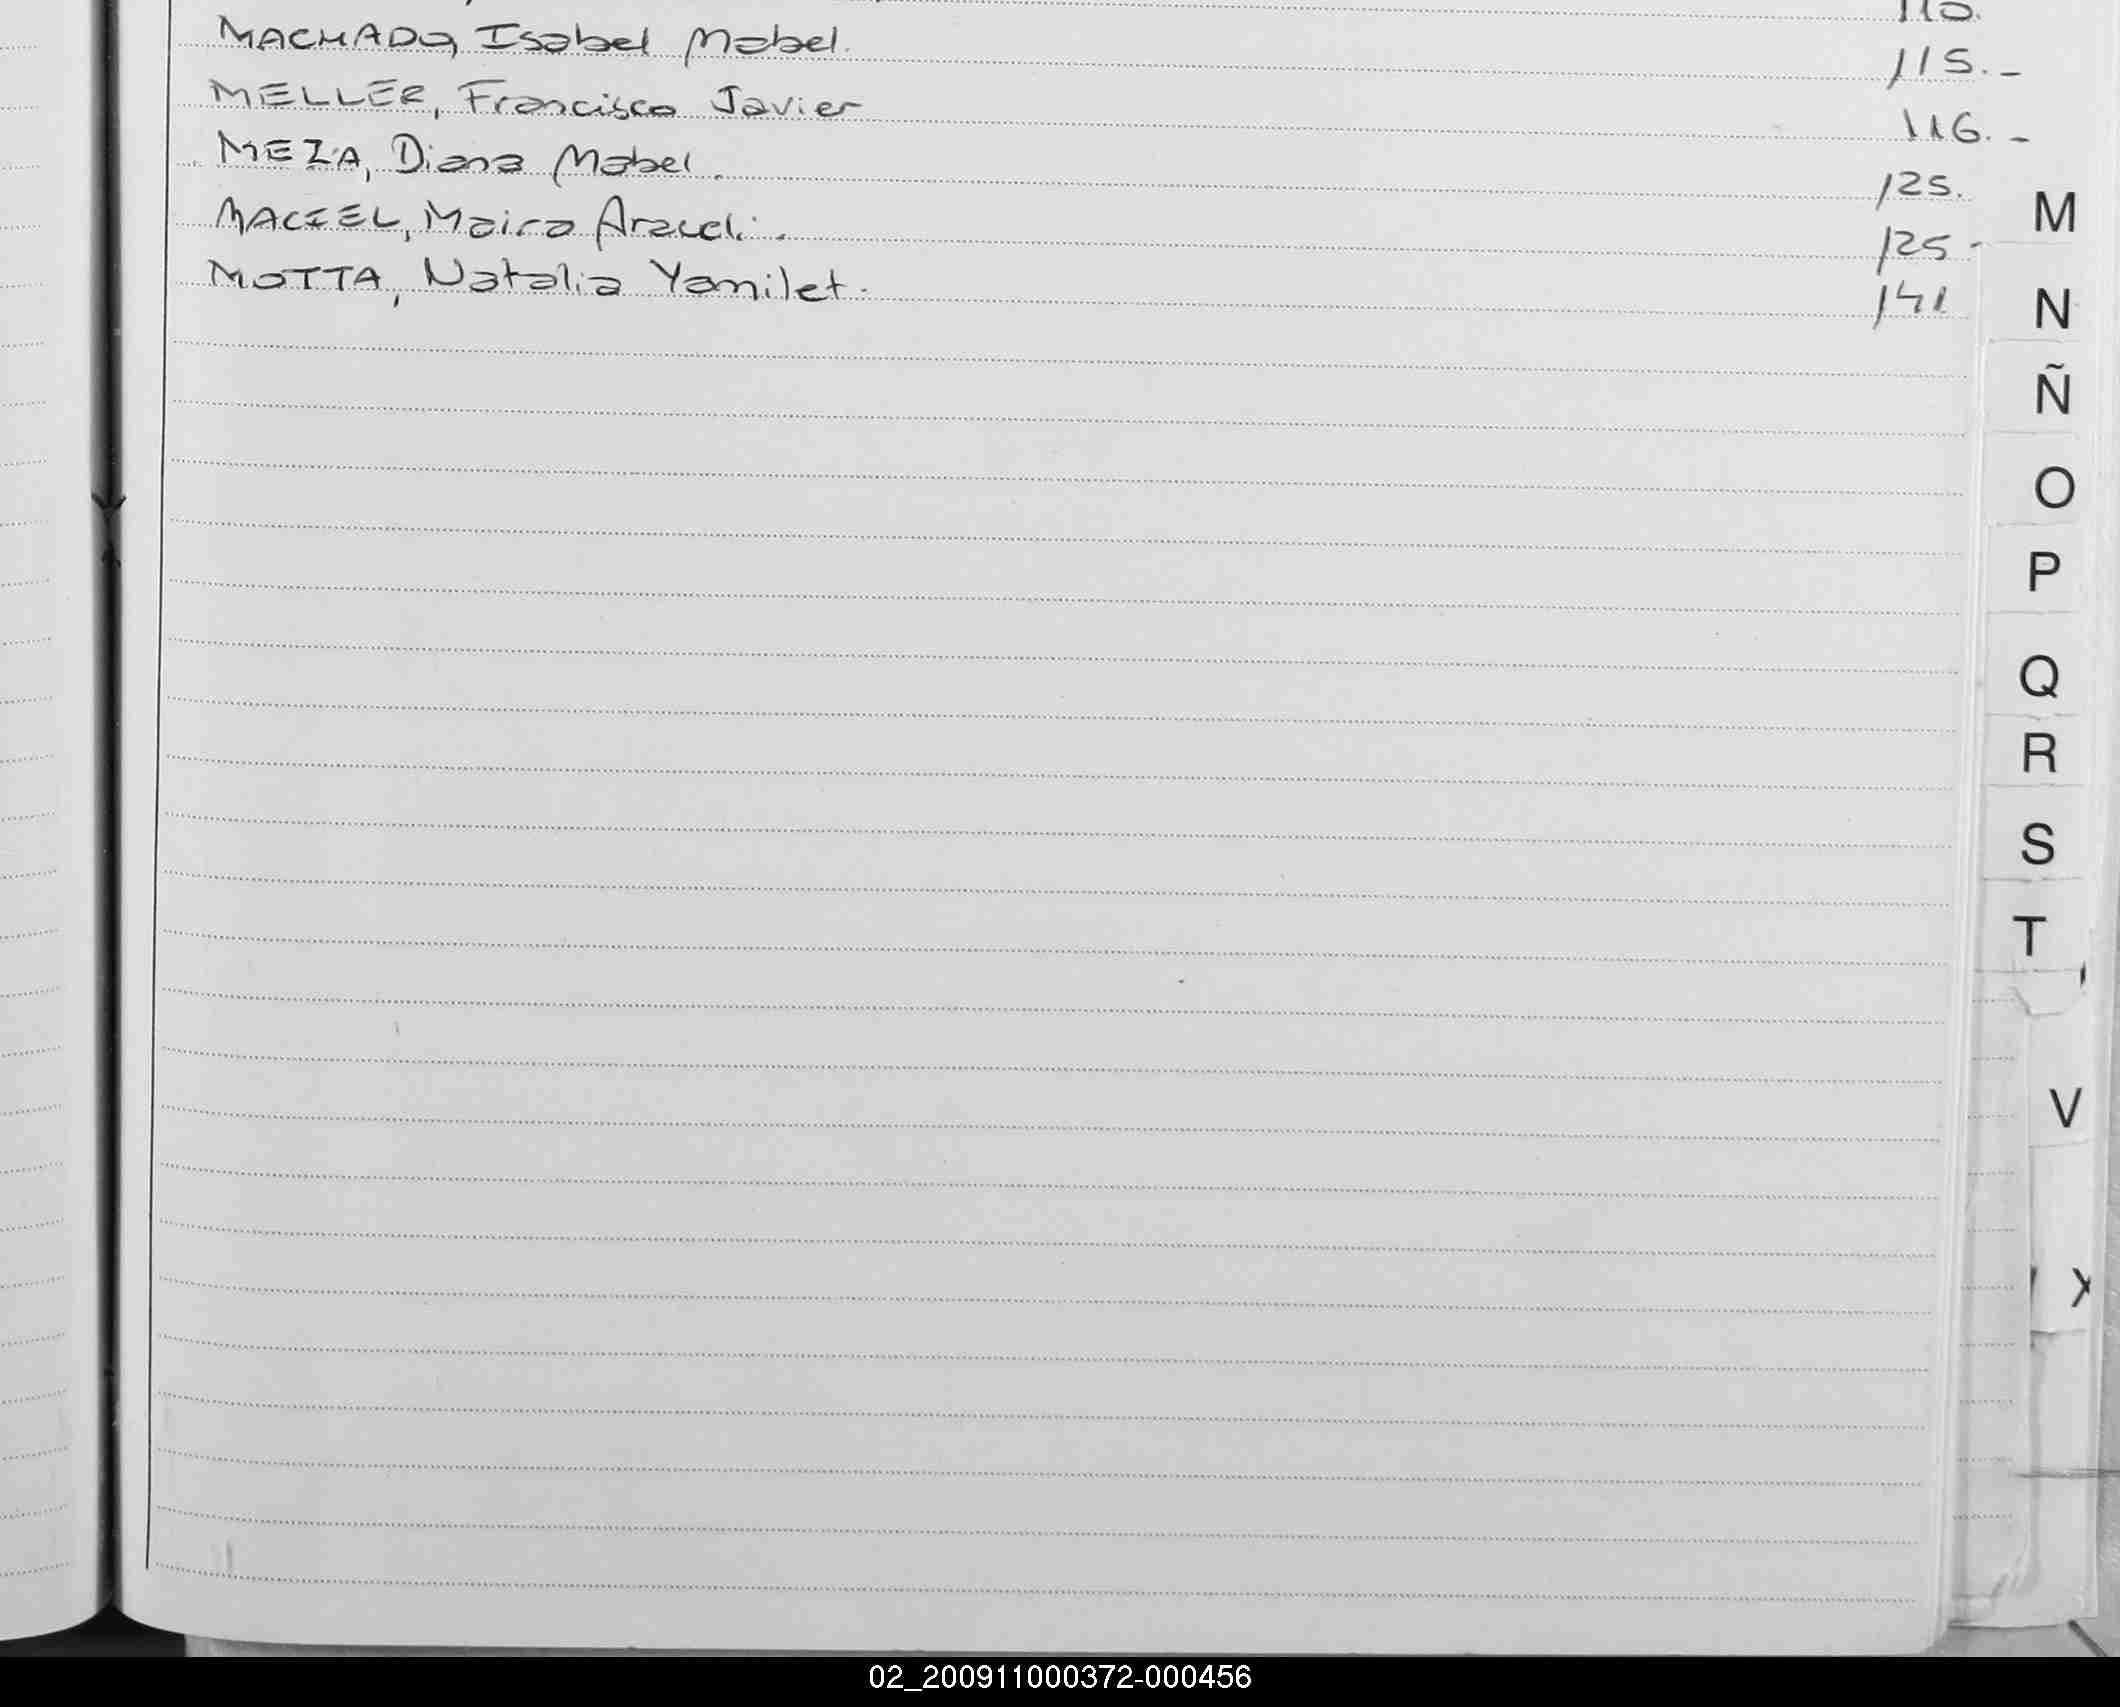 MACHADO, Isabel Mabel. 115.-
MELLER, Francisco Javier 116.-
MEZA, Diana Mabel. 125.
MACIEL, Maira Araceli. 125-
MOTTA, Natalia Yamilet. 141
M
N
Ñ
O
P
Q
R
S
T
V
X
02_200911000372-000456